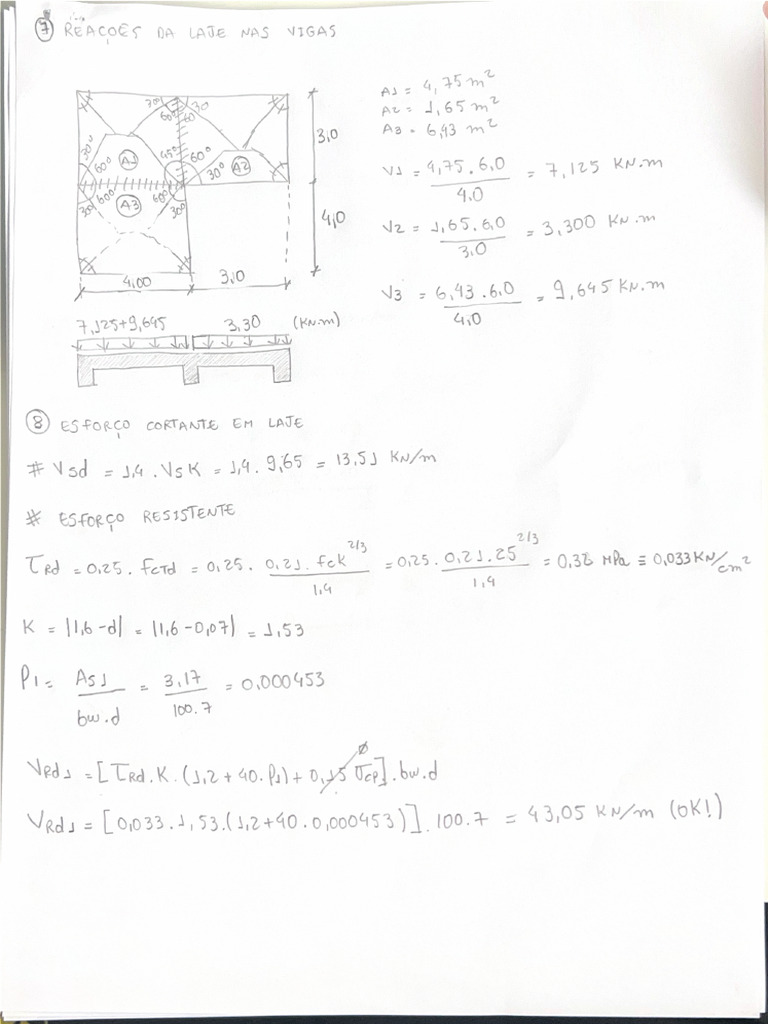 ⑦ REAÇÕES DA LAJE NAS VIGAS
A1 = 4,75 m²
A2 = 1,65 m²
A3 = 6,43 m²
V1 = 4,75 . 6,0 / 4,0 = 7,125 KN.m
V2 = 1,65 . 6,0 / 3,0 = 3,300 KN.m
V3 = 6,43 . 6,0 / 4,0 = 9,645 KN.m
70° 30
60° 60
30° 45° 60°
60° A1 30° A2
60° 60°
30 A3 30°
3,0
4,0
4,00 3,0
7,125+9,645 3,30 (KN.m)
⑧ ESFORÇO CORTANTE EM LAJE
# Vsd = 1,4 . Vsk = 1,4 . 9,65 = 13,51 KN/m
# ESFORÇO RESISTENTE
τRd = 0,25 . fctd = 0,25 . 0,21 . fck^2/3 / 1,4 = 0,25 . 0,21 . 25^2/3 / 1,4 = 0,32 MPa ≡ 0,033 KN/cm²
K = |1,6 - d| = |1,6 - 0,07| = 1,53
ρ1 = As1 / bw.d = 3,17 / 100.7 = 0,000453
VRd1 = [τRd . K . (1,2 + 40 . ρ1) + 0,15 σcp] . bw.d
0
VRd1 = [0,033 . 1,53 . (1,2 + 40 . 0,000453)] . 100.7 = 43,05 KN/m (OK!)